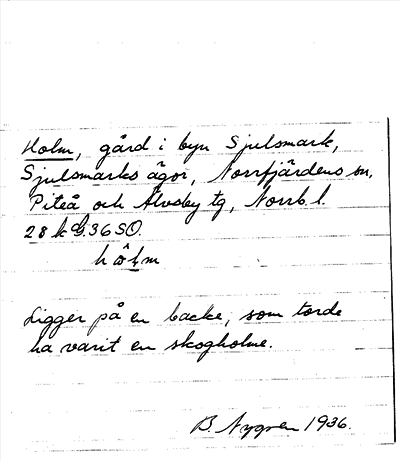 Holm, gård i byn Sjulsmark,
Sjulsmarks ägor, Norrfjärdens sn,
Piteå och Älvsby tg, Norrb. l.
28 k. G. 36 SO.
hôlm
Ligger på en backe, som torde
ha varit en skogholme.
B. Nygren 1936.